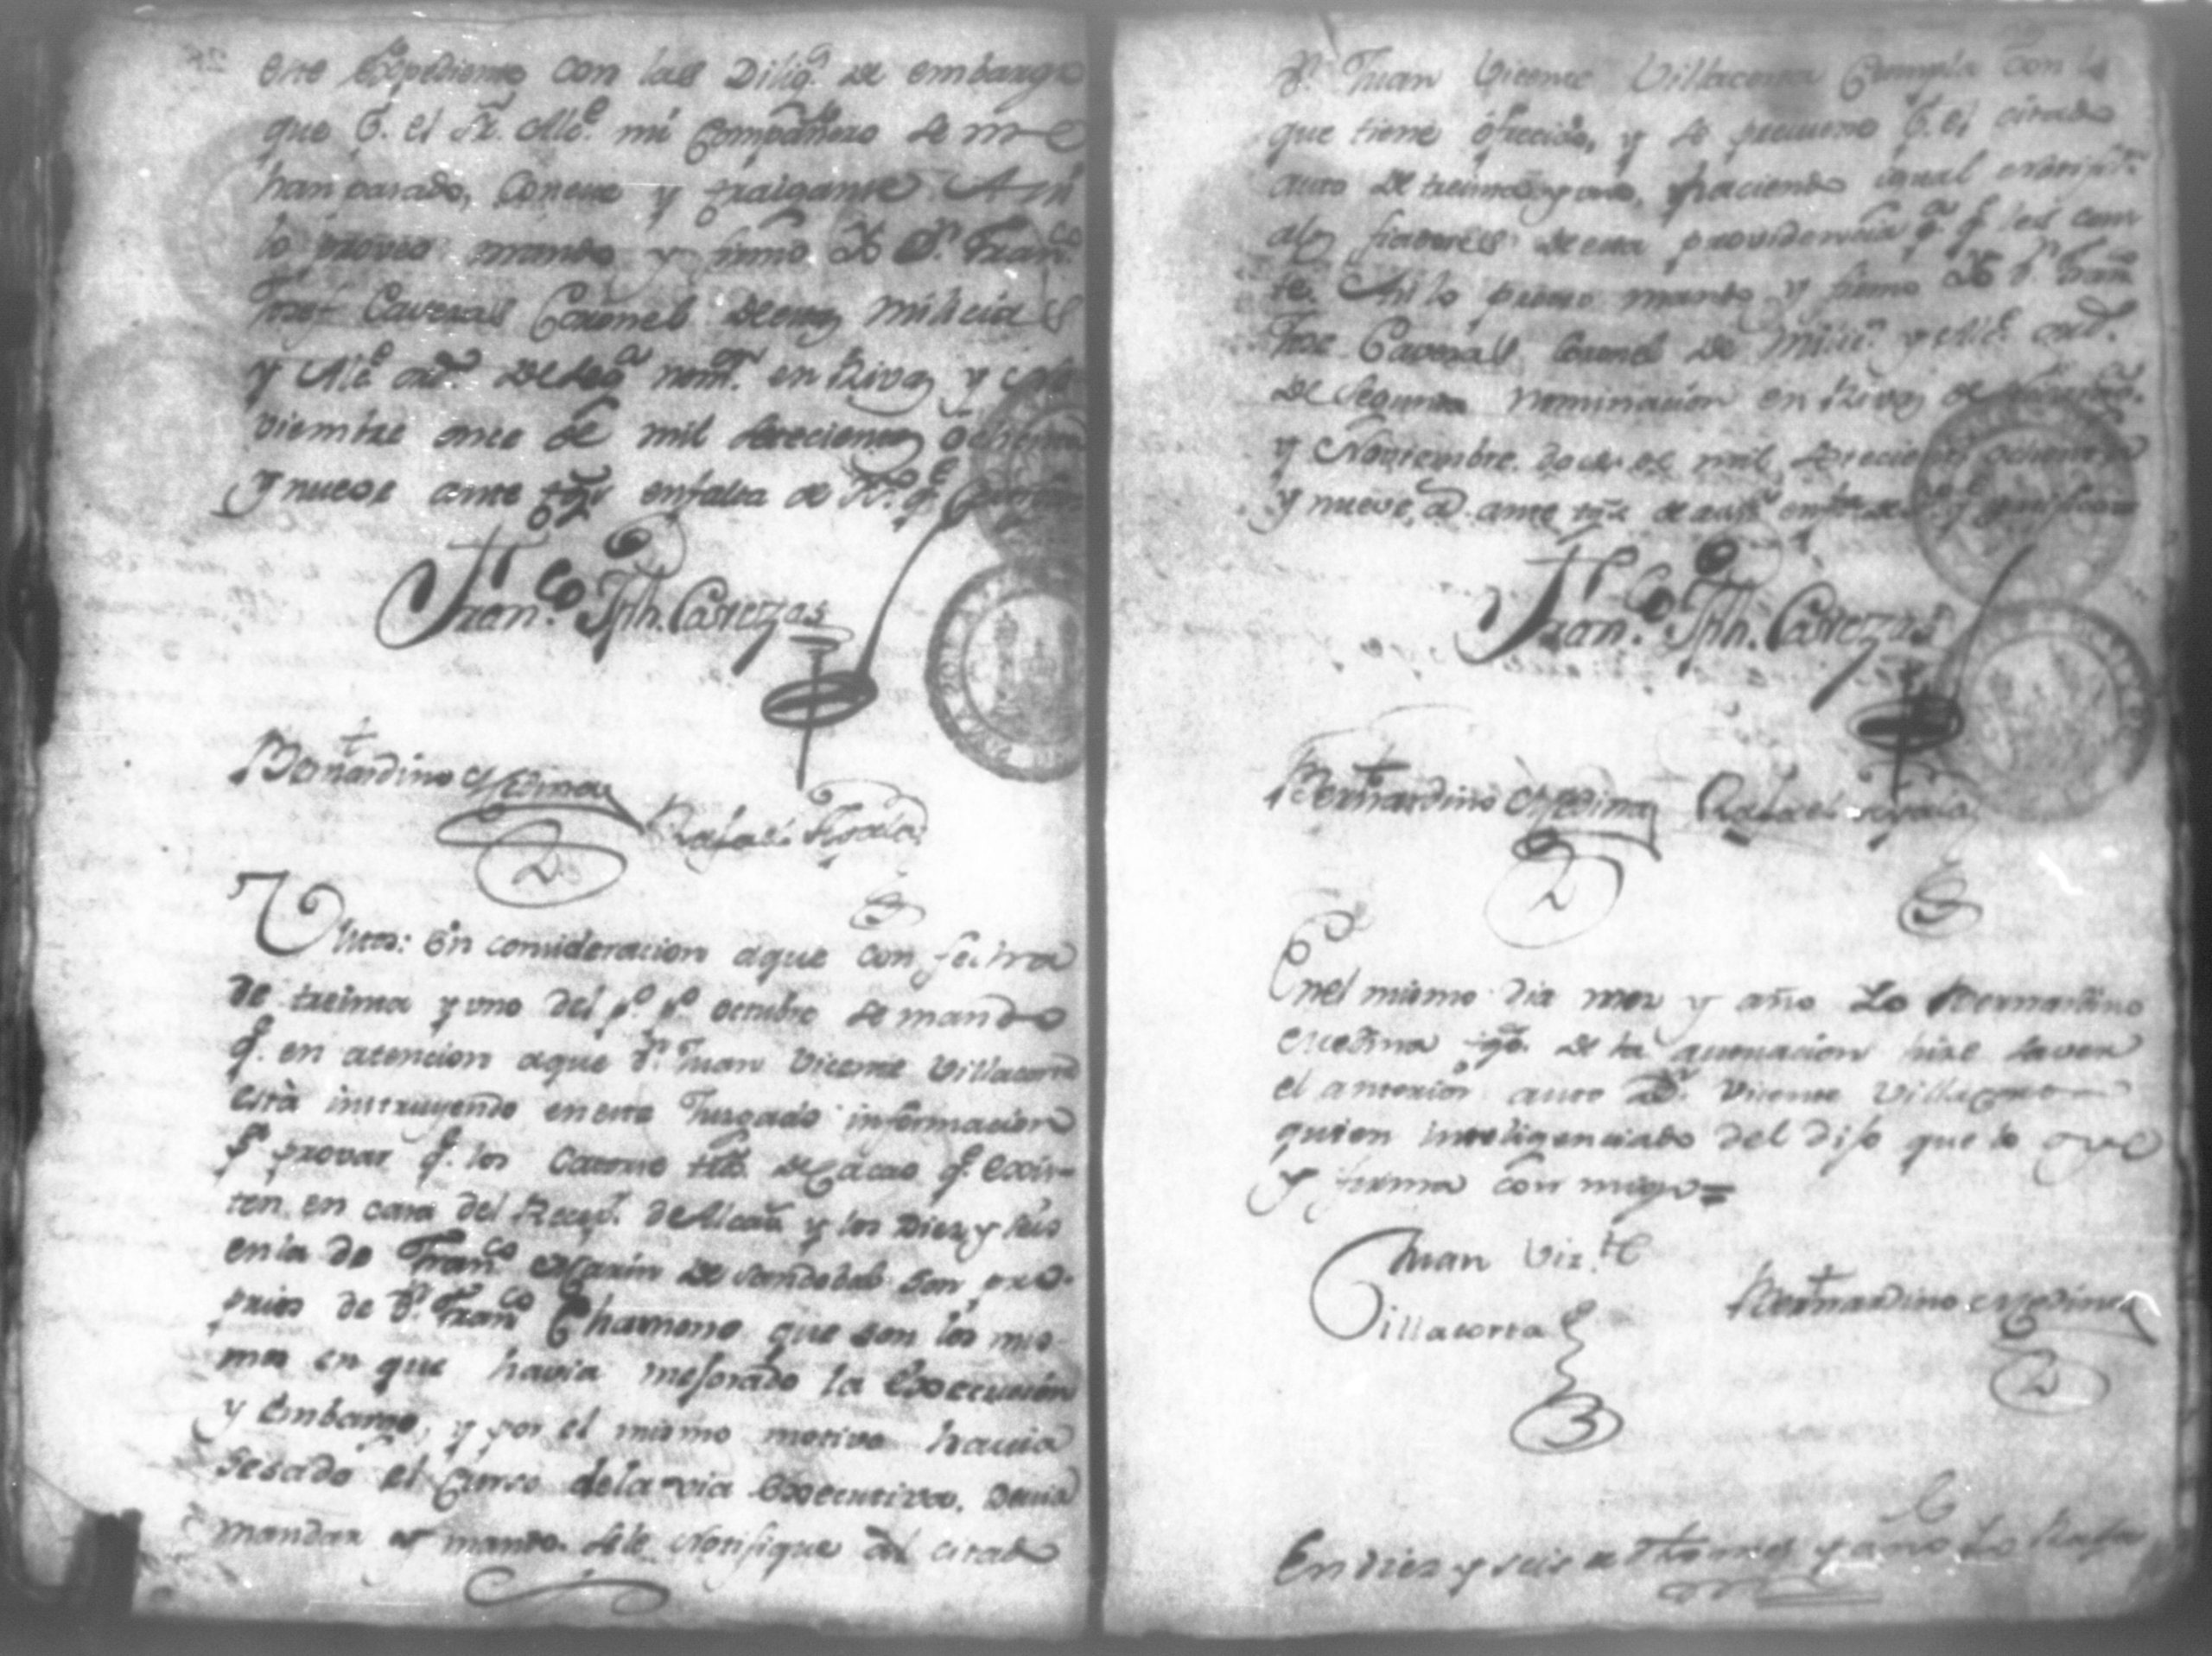 este Expediente con las Dilig.s de embargo
que p.r el Sr. Alc.e mi Compañero se me
han pasado, Conste y traiganse. Asi
lo proveo mando y firmo Yo D.n Fran.co
Josef Caveras Coronel de estas milicias
y Alc.e ord.o de seg.a nom.on en Rivas y No-
viembre onse de mil setecientos ochenta
y nueve ante tgos enfalta de
Fran.co Jph. Casterzas
Bernardino Medina
Rafael
Vistos: En consideracion aque con fecha
de treinta y uno del p.o p.o octubre se mando
q.e en atencion aque D.n Juan Vicente Villacorta
està instruyendo en este Juzgado informacion
p.a provar q.e los Catorse ts.s de Cacao q.e exis-
ten en casa del Recep.r de Alcav.s y los Diez y seis
en la de Fran.co Marin de Sandobal son pro-
prios de D.n Fran.co Chamorro que son los mis-
mos en que havia mejorado la Execucion
y Embargo, y por el mismo motivo havia
Sesado el Curso de la via Executiva. Devia
mandar y mando. Sele Notifique al citado
D.n Juan Vicente Villacorta Cumpla con lo
que tiene ofrecido, y se previene p.r el citado
auto de treinta y uno, haciendo igual notifi.on
alos fiadores de esta providencia p.a q.e les cons-
te. Asi lo proveo mando y firmo Yo D.n Fran.co
Jose Caveras Coronel de Milic.s y Alc.e ord.o
de Segunda nominacion en Rivas de
y Noviembre doce de mil setecientos ochenta
y nueve, a. ante tgs de
Fran.co Jph. Casterzas
Bernardino Medina Rafael
Enel mismo dia mes y año Yo Bernardino
Medina tgo. de la actuacion hise saver
el anterior auto a D.n Vicente Villacorta
quien inteligenciado del dijo que lo oye
y firma con migo =
Juan Viz.te
Villacorta
Bernardino Medina
En diez y seis de dho mes y año Yo Rafa